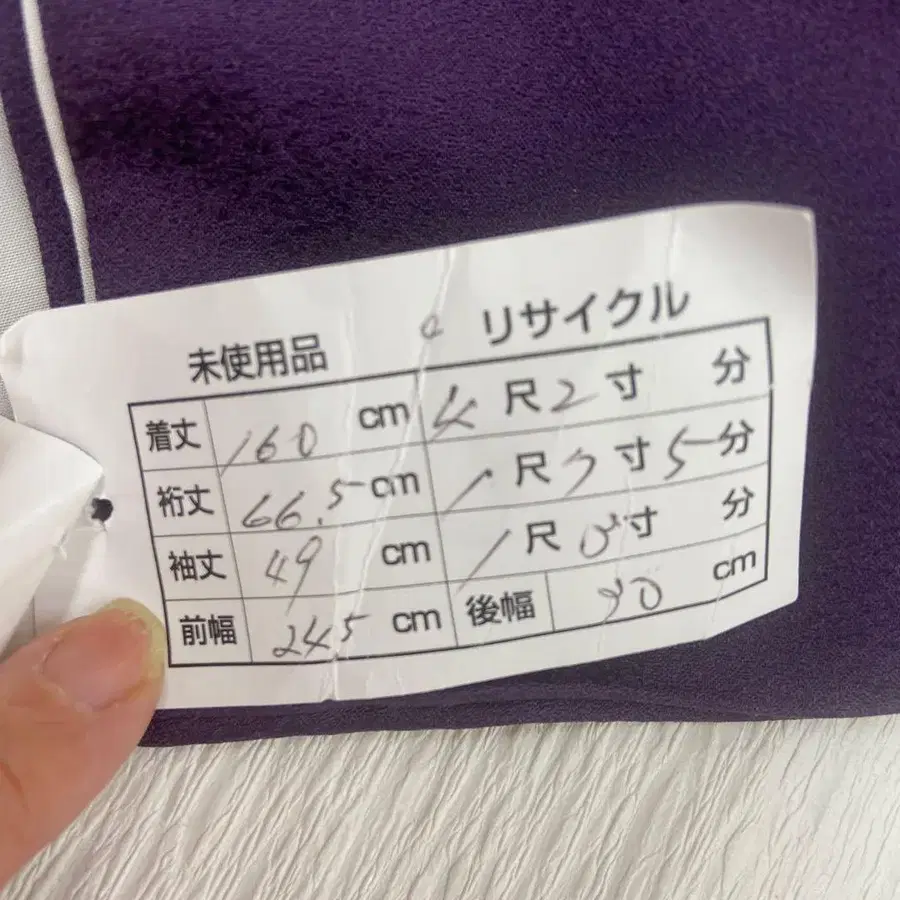 未使用品 リサイクル
着丈 160 cm 4尺2寸 分
裄丈 66.5 cm 1尺7寸5分
袖丈 49 cm 1尺3寸 分
前幅 24.5 cm 後幅 30 cm